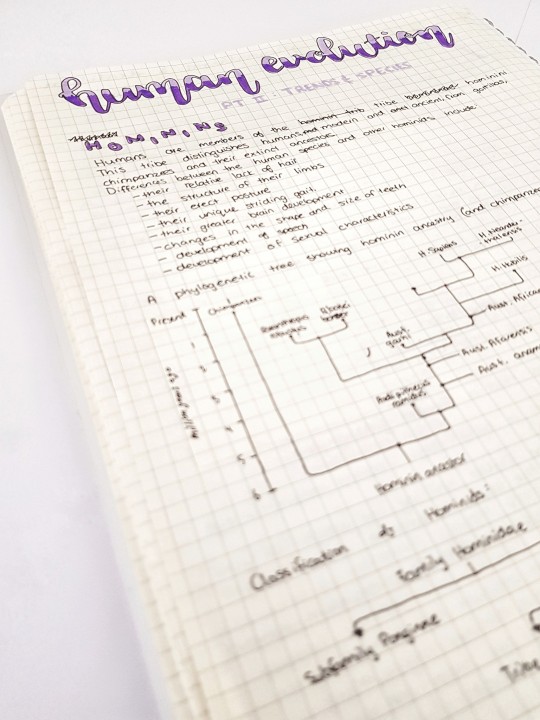 human evolution
PT II TRENDS & SPECIES
HOMININS
Humans are members of the tribe hominini
This tribe distinguishes humans, modern and ancient, from gorillas,
chimpanzees and their extinct ancestors.
Differences between the human species and other hominids include
- their relative lack of hair
- the structure of their limbs
- their erect posture
- their unique striding gait.
- their greater brain development
- changes in the shape and size of teeth
- development of speech
- development of sexual characteristics
A phylogenetic tree showing hominin ancestry (and chimpanzee
Present
Chimpanzees
H. Sapiens
H. Neander-
thalensis
H. Habilis
Aust. African
Aust.
garhi
Aust. Afarensis
Aust. anam
ramidus
1
2
3
4
5
6
Million years ago
Hominin ancestor
Classification of Hominids:
Family Hominidae
Subfamily Ponginae
Tribe